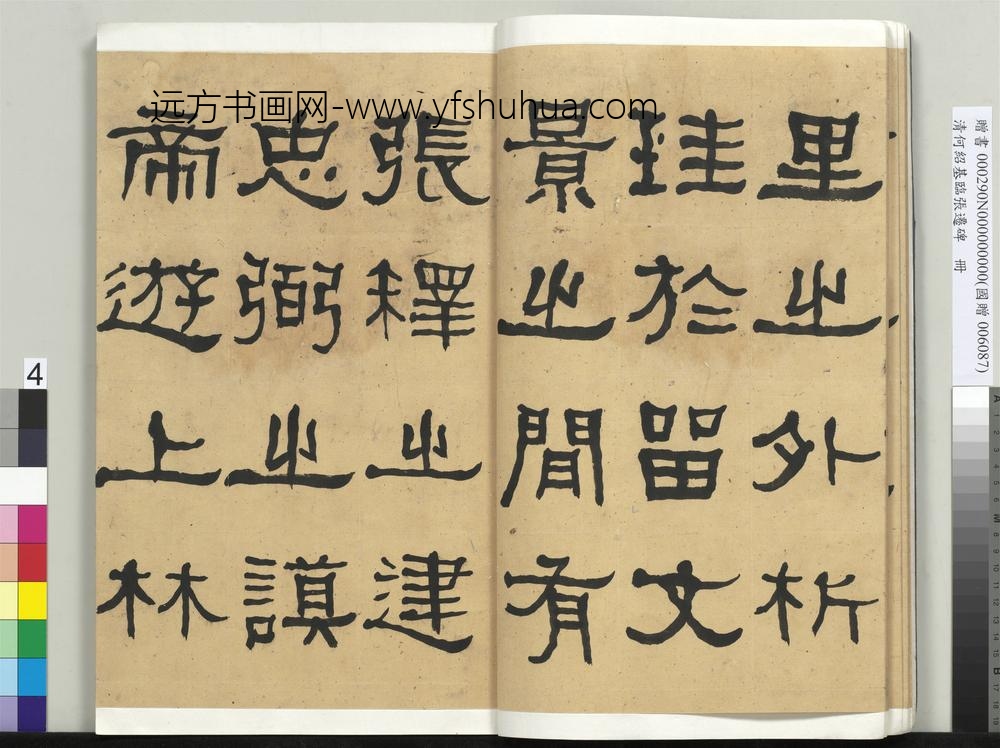 远方书画网-www.yfshuhua.com
里之外析
珪於留文
景之間有
張釋之建
忠弼之謨
帝遊上林
贈書 000290N000000000(國贈 006087)
清何紹基臨張遷碑 冊
4